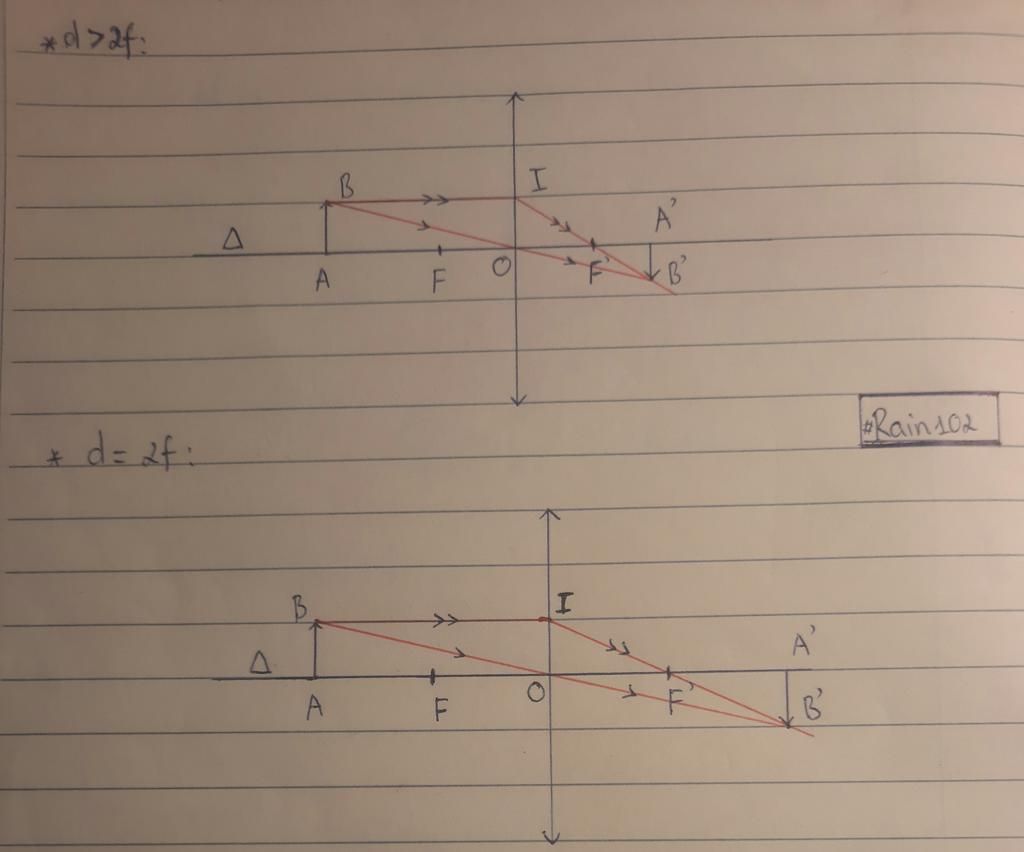 * d > 2f:
B I
A'
Δ
A F O F' B'
#Rain102
* d = 2f:
B I
A'
Δ
A F O F' B'